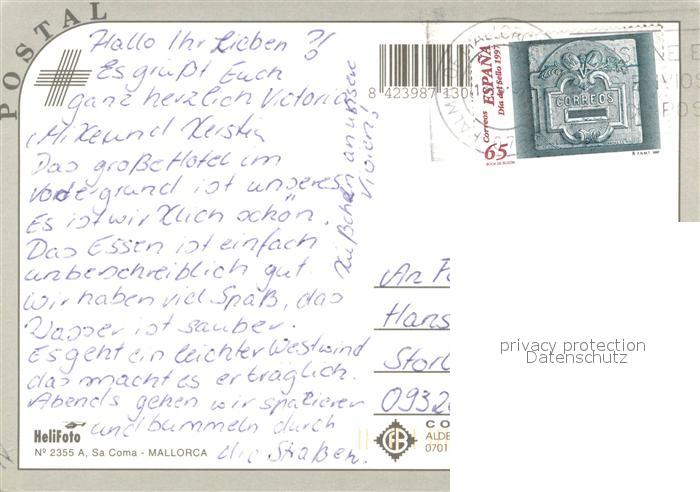 POSTAL
Hallo Ihr Lieben ?!
Es grüßt Euch
ganz herzlich Victoria
, Mike und Kerstin
Das große Hotel im
Vordergrund ist unseres
Es ist wirklich schön.
Das Essen ist einfach
unbeschreiblich gut.
wir haben viel Spaß, das
Wasser ist sauber.
Es geht ein leichter Westwind
das macht es erträglich.
Abends gehen wir spatieren
und bummeln durch
die Straßen.
Küßchen an unsere
Vivien!
8 423987 1304
Correos ESPAÑA
Día del Sello 1997
65
CORREOS
F.N.M.T. 1997
An Fa
Hans
Storl
0932
privacy protection
Datenschutz
HeliFoto
Nº 2355 A, Sa Coma - MALLORCA
CO
ALDE
0701